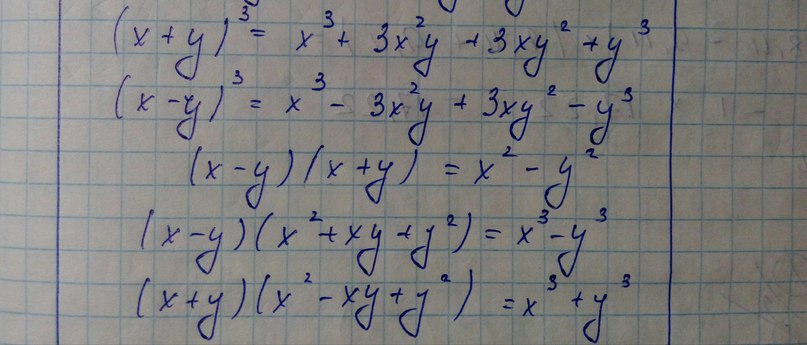 (x+y)³ = x³ + 3x²y + 3xy² + y³
(x-y)³ = x³ - 3x²y + 3xy² - y³
(x-y)(x+y) = x² - y²
(x-y)(x²+xy+y²) = x³-y³
(x+y)(x²-xy+y²) = x³+y³